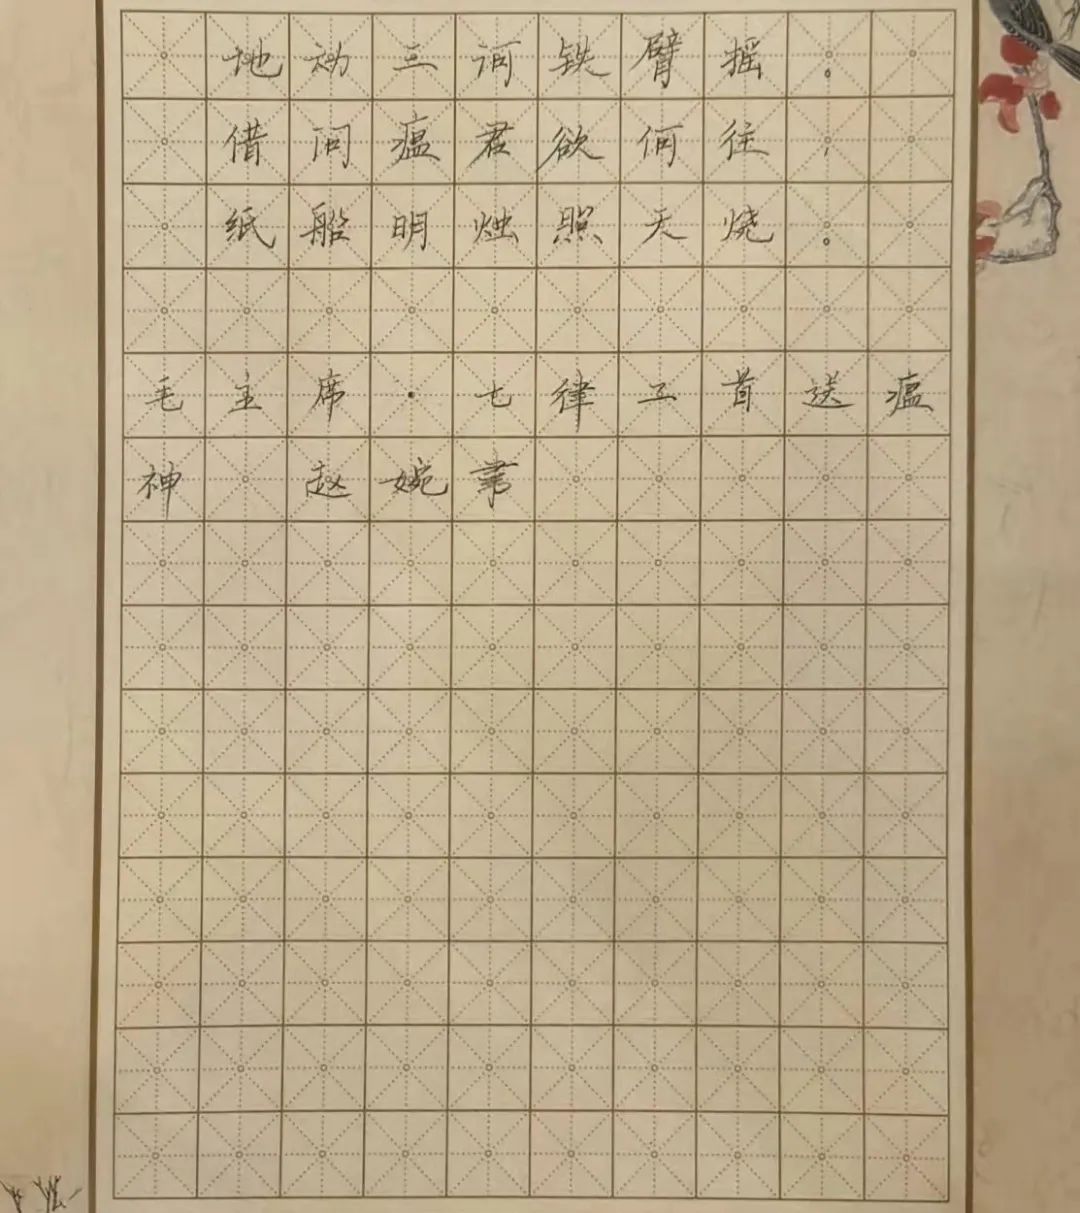 地动三河铁臂摇。
借问瘟君欲何往,
纸船明烛照天烧。
毛主席·七律二首送瘟
神 赵婉书